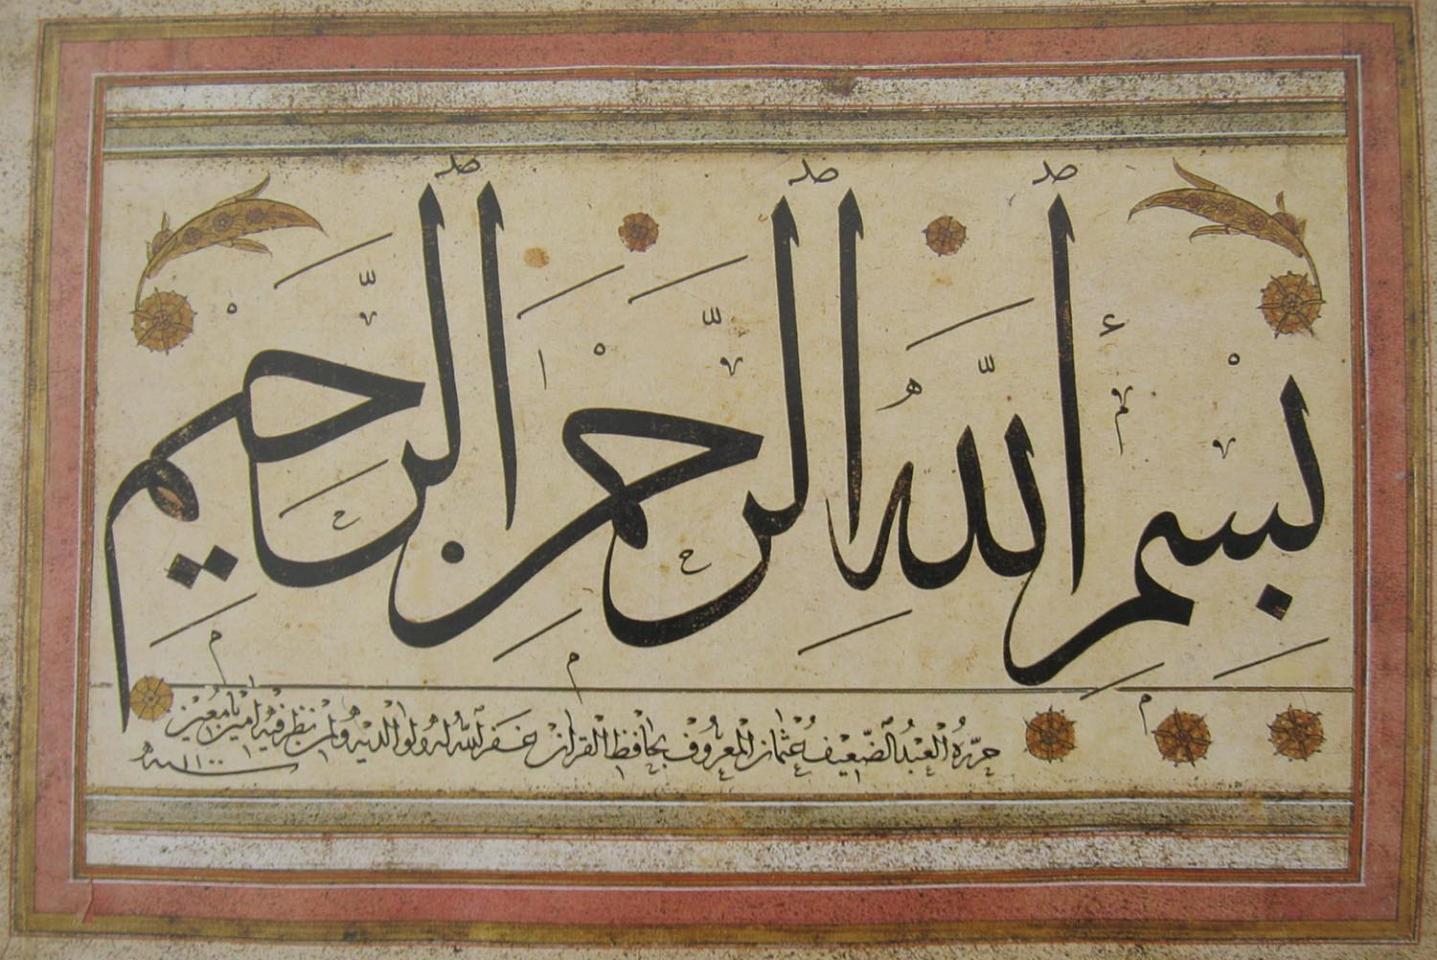 بِسْمِ ٱللّٰهِ ٱلرَّحْمٰنِ ٱلرَّحِيمِ
حرّره العبد الضعيف عثمان المعروف بحافظ القرآن غفر الله له ولوالديه ولمن نظر فيه امين يا معين
سنه ١١٠٠